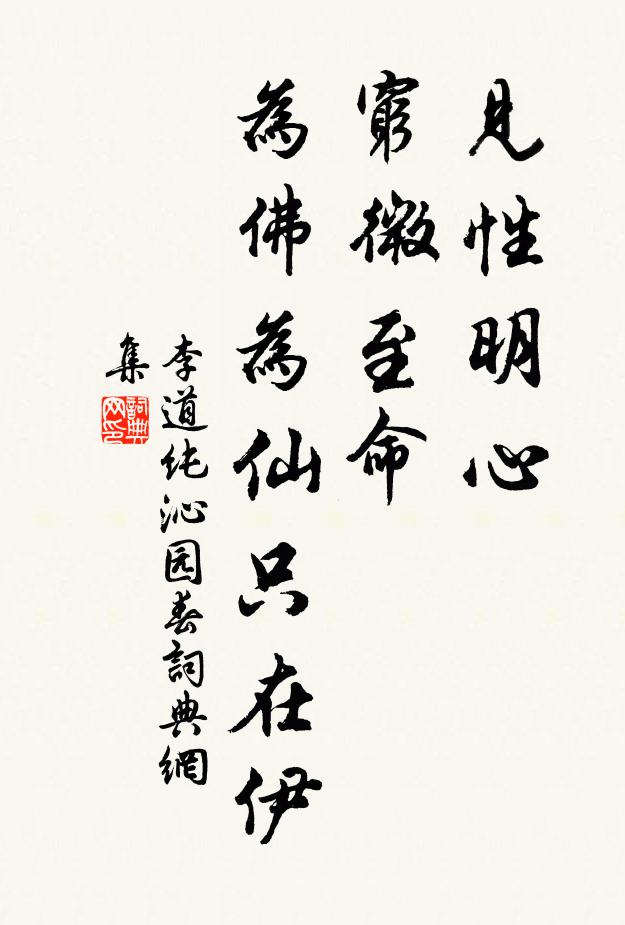 見性明心
窮微至命
為佛為仙只在伊
李道純沁园春詞典網
集
詞典
网印